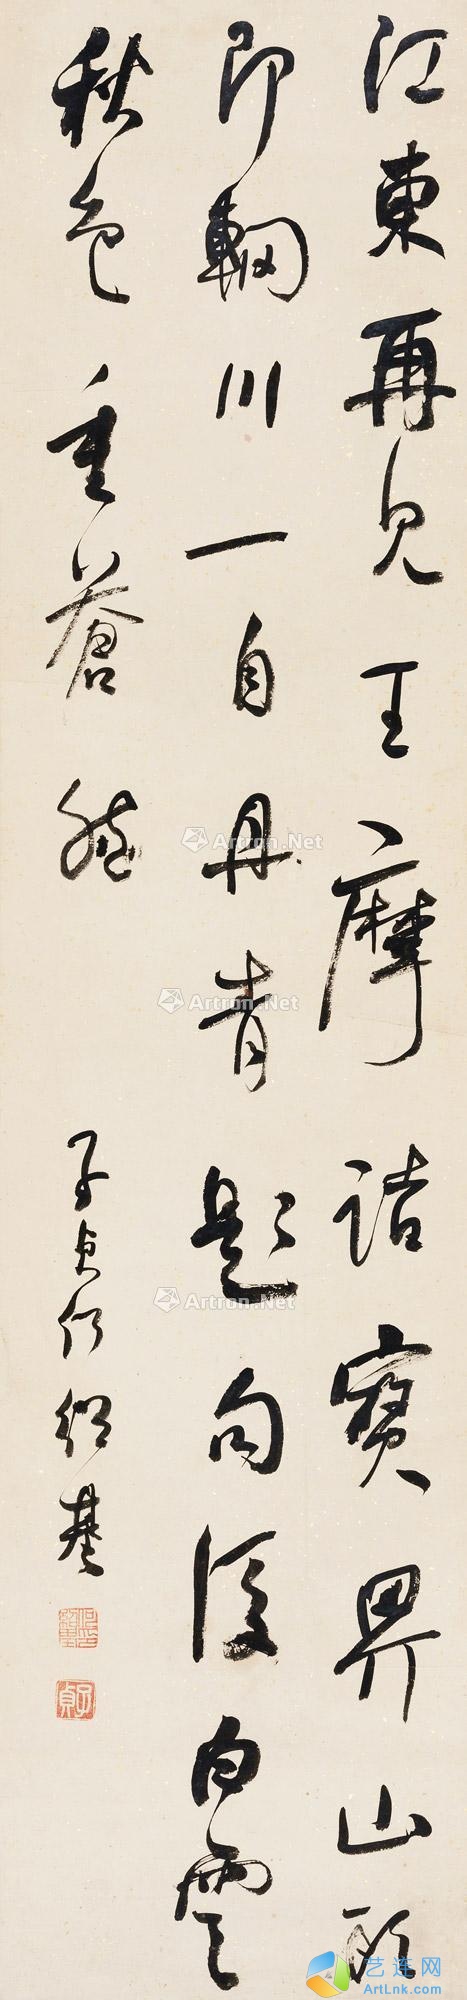 江東再見王摩詰寶界山頭
即輞川一自丹青題句後白雲
秋色重蒼然
子貞何紹基
何紹基印
子貞
Artron.Net
Artron.Net
Artron.Net
艺连网
ArtLnk.com